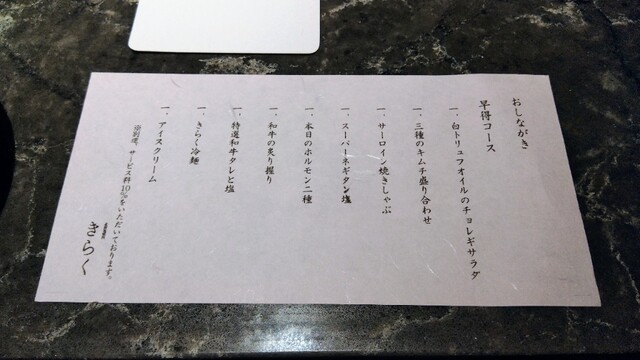 おしながき
早得コース
一、白トリュフオイルのチョレギサラダ
一、三種のキムチ盛り合わせ
一、サーロイン焼きしゃぶ
一、スーパーネギタン塩
一、本日のホルモン二種
一、和牛の炙り握り
一、特選和牛タレと塩
一、きらく冷麺
一、アイスクリーム
※別途、サービス料10%をいただいております。
きらく